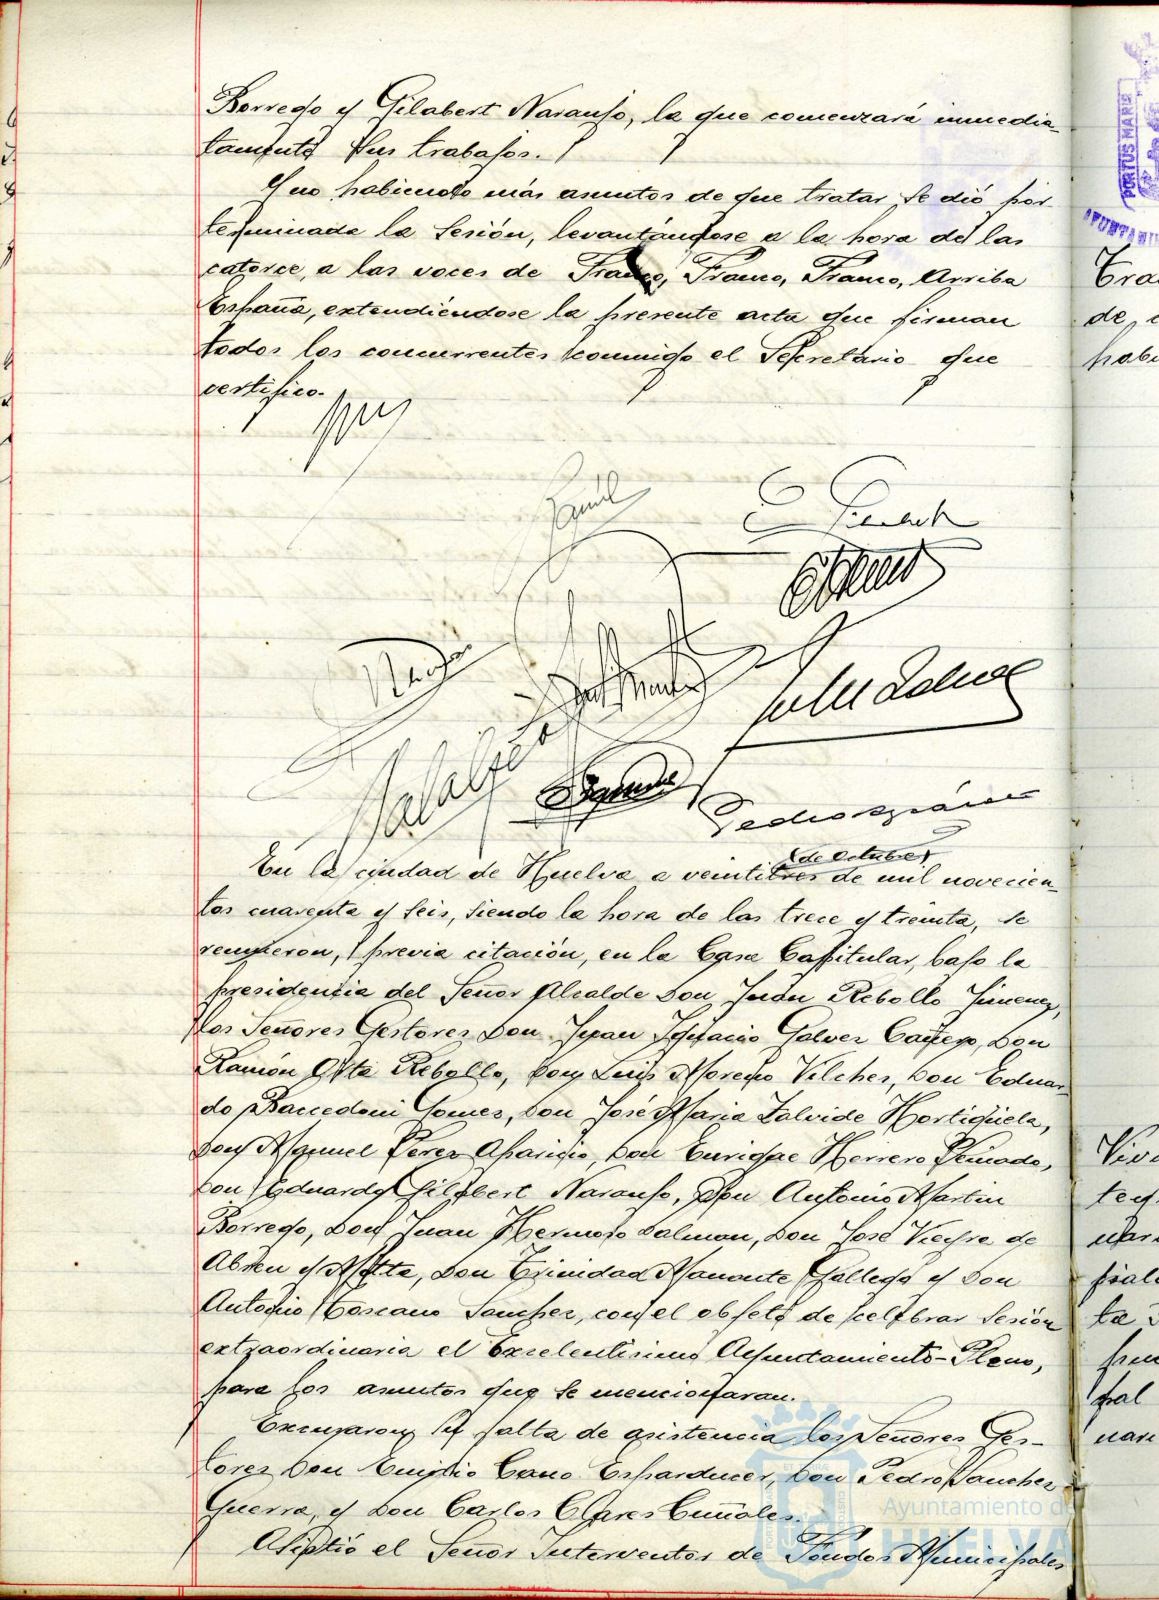 Borrego y Gilabert Naranjo, la que comenzará inmedia-
tamente sus trabajos.
Y no habiendo más asuntos de que tratar, se dió por
terminada la sesión, levantándose a la hora de las
catorce, a las voces de Franco, Franco, Franco, Arriba
España, extendiéndose la presente acta que firman
todos los concurrentes conmigo el Secretario que
certifico.
Pedro
(de octubre)
En la ciudad de Huelva a veintitres de mil novecien-
tos cuarenta y seis, siendo la hora de las trece y treinta, se
reunieron, previa citación, en la Casa Capitular, bajo la
presidencia del Señor Alcalde Don Juan Rebollo Jimenez,
los Señores Gestores Don Juan Ignacio Galvez Cañero, Don
Ramón Rebollo, Don Luis Moreno Vilches, Don Eduar-
do Gomez, Don José Maria Zalvide Hortigüela,
Don Manuel Perez Aparicio, Don Enrique Herrero Peinado,
Don Eduardo Gilabert Naranjo, Don Antonio Martin
Borrego, Don Juan Hermoso Salmon, Don José Vieyra de
Abreu y Motta, Don Trinidad Gallego y Don
Antonio Toscano Sanchez, con el objeto de celebrar sesión
extraordinaria el Excelentisimo Ayuntamiento-Pleno,
para los asuntos que se mencionaran.
Excusaron su falta de asistencia los Señores Ges-
tores Don Emilio Cano Don Pedro Sanchez
Guerra, y Don Carlos
Asistió el Señor Interventor de Fondos Municipales
PORTUS MARIS
de
habi
Ayuntamiento de
HUELVA